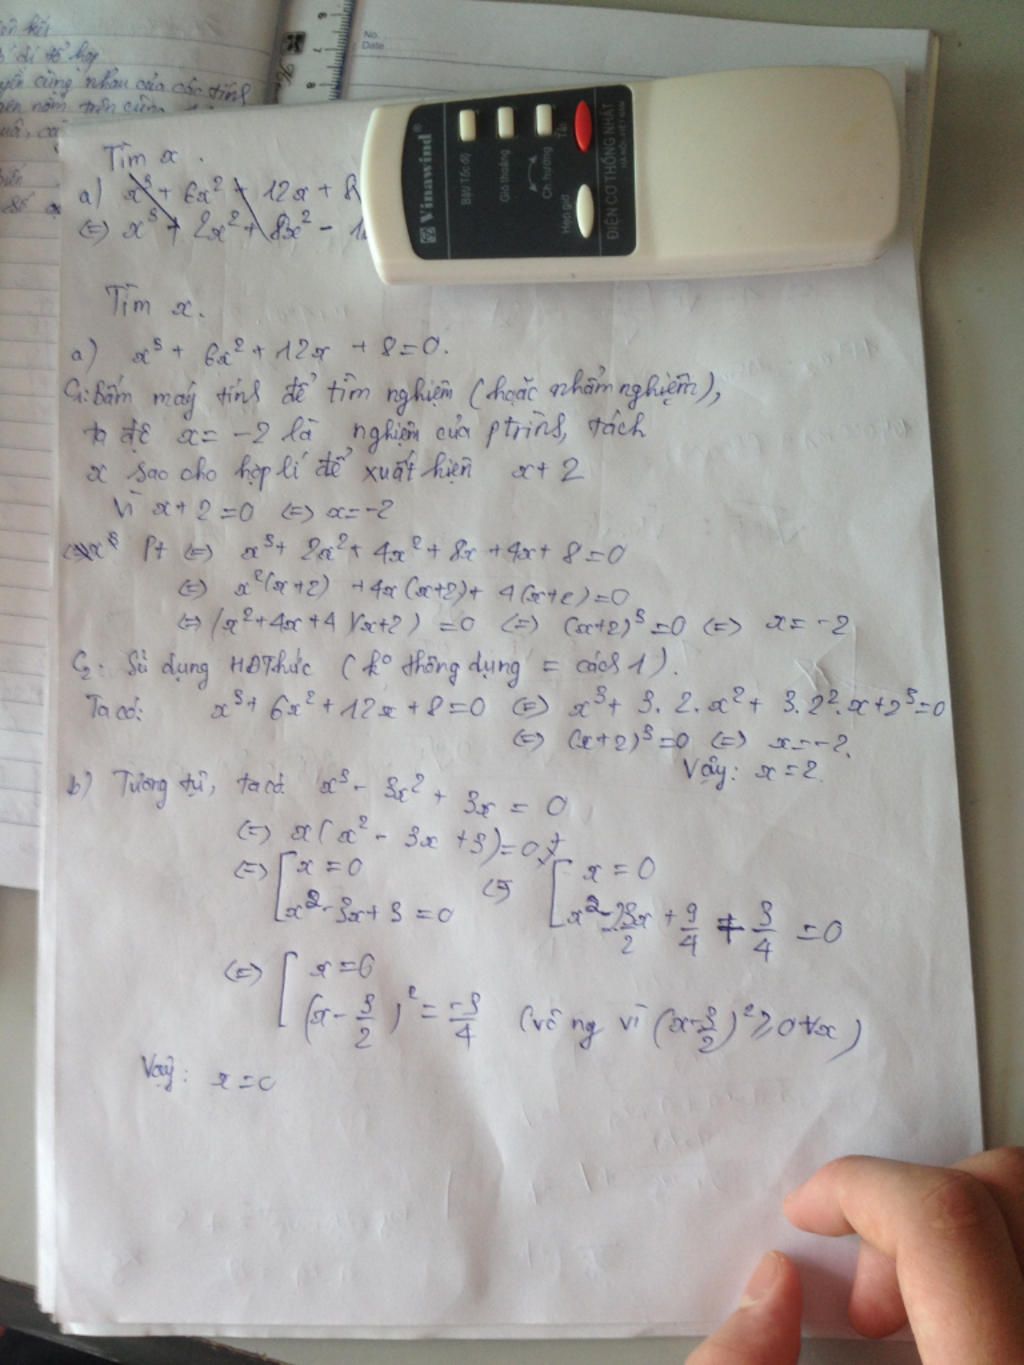 No.
Date
yến cùng nhau của các tính
Tìm x.
a) x³ + 6x² + 12x + 8
(=) x³ + 2x² + 8x² - 1
Vinawind®
Bật/ Tốc độ
Gió thoảng
Ch. hướng
Tắt
Hẹn giờ
ĐIỆN CƠ THỐNG NHẤT
HÀ NỘI - VIỆT NAM
Tìm x.
a) x³ + 6x² + 12x + 8 = 0.
C₁: Bấm máy tính để tìm nghiệm (hoặc nhẩm nghiệm),
ta để x = -2 là nghiệm của ptrình, tách
x sao cho hợp lí để xuất hiện x + 2
Vì x + 2 = 0 (=) x = -2
Pt (=) x³ + 2x² + 4x² + 8x + 4x + 8 = 0
(=) x²(x+2) + 4x(x+2) + 4(x+2) = 0
(=) (x² + 4x + 4)(x+2) = 0 (=) (x+2)³ = 0 (=) x = -2
C₂: Sử dụng HĐThức (k° thông dụng = cách 1).
Ta có: x³ + 6x² + 12x + 8 = 0 (=) x³ + 3.2.x² + 3.2².x + 2³ = 0
(=) (x+2)³ = 0 (=) x = -2.
Vậy: x = 2.
b) Tương tự, ta có x³ - 3x² + 3x = 0
(=) x(x² - 3x + 3) = 0
(=) [ x = 0 (=) [ x = 0
x² - 3x + 3 = 0 x² - 2 3/2 x + 9/4 + 3/4 = 0
(=) [ x = 0
(x - 3/2)² = -3/4 (vô ng vì (x - 3/2)² ≥ 0 ∀x)
Vậy: x = 0